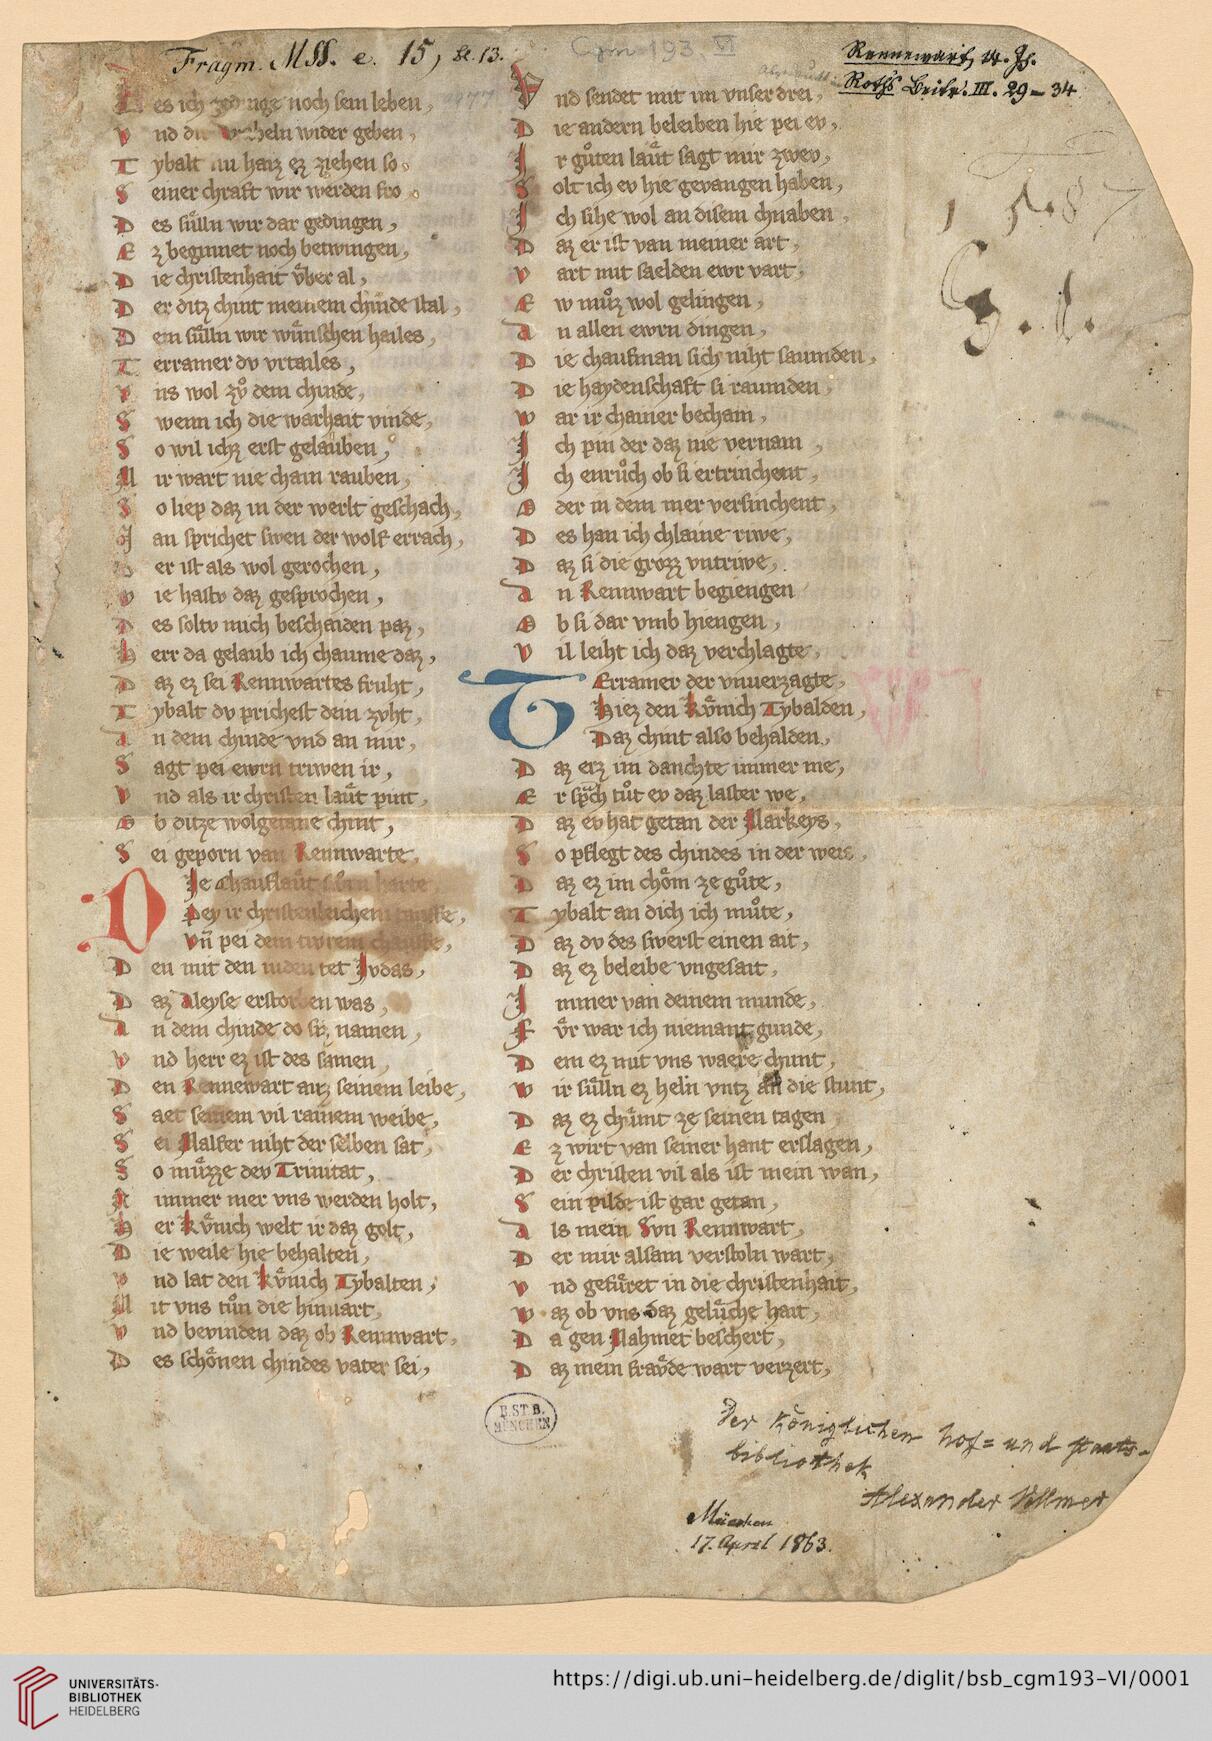 Fragm. MSS. e. 15, bl. 13.
Cgm 193. VI
Rennewart, 14. Jh.
Roths Beitr. III. 29–34
1587
es ich gedinge noch sein leben,
vnd di heln wider geben,
Tybalt nu harz ez ziehen so.
Seiner chraft wir werden fro.
Des sülln wir dar gedingen,
Ez beginnet noch betwingen,
Die christenhait vber al,
Der ditz chint meinem chinde stal,
Dem sülln wir wünschen hailes,
Terramer dv vrtailes,
vns wol zů dem chinde,
Swenn ich die warhait vinde,
So wil ichz erst gelauben,
Mir wart nie cham rauben,
So liep daz in der werlt geschach,
Man sprichet swen der wolf errach,
Der ist als wol gerochen,
wie hastv daz gesprochen,
Des soltv mich beschaiden paz,
herr da gelaub ich chaume daz,
Daz ez sei Rennwartes fruht,
Tybalt dv prichest dein zvht,
An dem chinde vnd an mir,
Sagt pei ewrn triwen ir,
Vnd als ir christen laüt pint,
Ob ditze wolgetane chint,
Sei geporn van Rennwarte,
DIe Chauflaüt harte
Pey ir christenleichem tauffe,
Vñ pei dem tiwrem chauffe,
Den mit den iuden tet Jvdas,
Daz Aleyse erstorben was,
An dem chinde do sp, namen,
Vnd herr ez ist des samen,
Den Rennewart auz seinem leibe,
Saet seinem vil rainem weibe,
Sei Malfer niht der selben sat,
So müzze dev Trinitat,
Nimmer mer vns werden holt,
Her Kvnich welt ir daz golt,
Die weile hie behalten,
Vnd lat den Kvnich Tybalten,
Mit vns tůn die hinuart,
Vnd bevinden daz ob Rennwart,
Des schönen chindes vater sei,
Vnd sendet mit im vnser drei,
Die andern beleiben hie pei ev,
Ir gůten laüt sagt mir zwev,
Solt ich ev hie gevangen haben,
Ich sihe wol an disem chnaben,
Daz er ist van meiner art,
Vart mit saelden ewr vart,
Ew můz wol gelingen,
An allen ewrn dingen,
Die chaufman sich niht saumden,
Die haydenschaft si raumden,
War ir chainer becham,
Ich pin der daz nie vernam,
Ich enrůch ob si ertrinchent,
Oder in dem mer versinchent,
Des han ich chlaine riwe,
Daz si die grozz vntriwe,
An Rennwart begiengen
Ob si dar vmb hiengen,
Vil leiht ich daz verchlagte,
TErramer der vnuerzagte,
Hiez den Kvnich Tybalden,
Daz chint also behalden,
Daz erz im danchte immer me,
Er sprach tůt ev daz laster we,
Daz ev hat getan der Markeys,
So pflegt des chindes in der weis,
Daz ez im chöm ze gůte,
Tybalt an dich ich můte,
Daz dv des swerst einen ait,
Daz ez beleibe vngesait,
Immer van deinem munde,
Fvr war ich niemant gunde,
Dem ez mit vns waere chunt,
Wir sülln ez heln vntz an die stunt,
Daz ez chümt ze seinen tagen
Ez wirt van seiner hant erslagen,
Der christen vil als ist mein wan,
Sein pilde ist gar getan,
Als mein Svn Rennwart,
Der mir alsam verstoln wart,
Vnd gefüret in die christenhait,
Waz ob vns daz gelüche hait,
Da gen Mahmet beschert,
Daz mein fravde wart verzert,
B.ST.B.
MÜNCHEN
Der Königlichen Hof= und staats-
bibliothek
Alexander Vollmer
München
17. April 1863.
UNIVERSITÄTS-
BIBLIOTHEK
HEIDELBERG
https://digi.ub.uni-heidelberg.de/diglit/bsb_cgm193-VI/0001